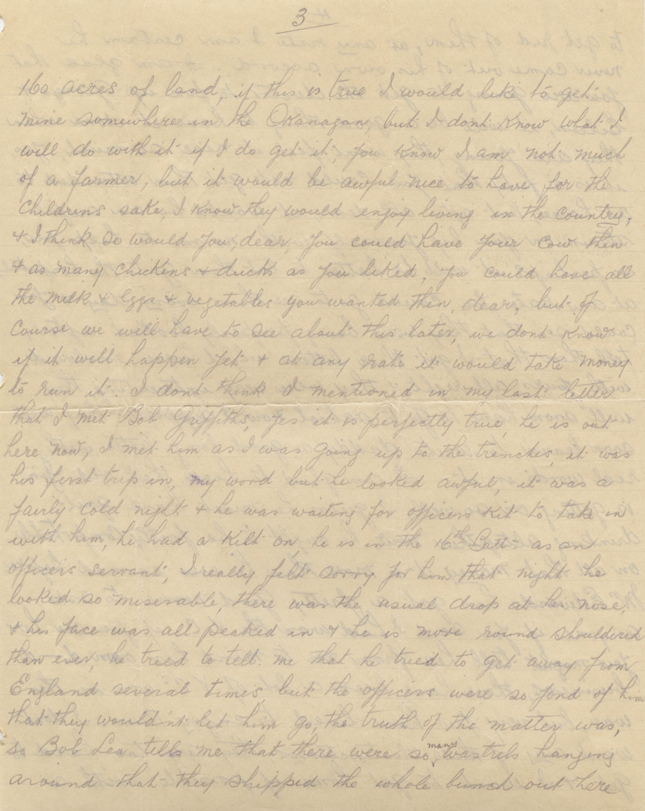 3
160 acres of land, if this is true I would like to get
mine somewhere in the Okanagan, but I dont know what I
will do with it if I do get it, you know I am not much
of a farmer, but it would be awful nice to have for the
childrens sake, I know they would enjoy living in the country,
& I think so would you, dear, you could have your cow then
& as many chickens & ducks as you liked, you could have all
the milk & eggs & vegetables you wanted then, dear, but of
course we will have to see about this later, we dont know
if it will happen yet & at any rate it would take money
to run it. I dont think I mentioned in my last letter
that I met Bob Griffiths, yes it is perfectly true, he is out
here now, I met him as I was going up to the trenches, it was
his first trip in, my word but he looked awful, it was a
fairly cold night & he was waiting for officers kit to take in
with him, he had a kilt on, he is in the 16th Batt: as an
officers servant, I really felt sorry for him that night he
looked so miserable, there was the usual drop at his nose,
& his face was all peaked in & he is more round shouldered
than ever, he tried to tell me that he tried to get away from
England several times but the officers were so fond of him
that they wouldn't let him go, the truth of the matter was,
so Bob Lea tells me that there were so many wastrels hanging
around that they shipped the whole bunch out here